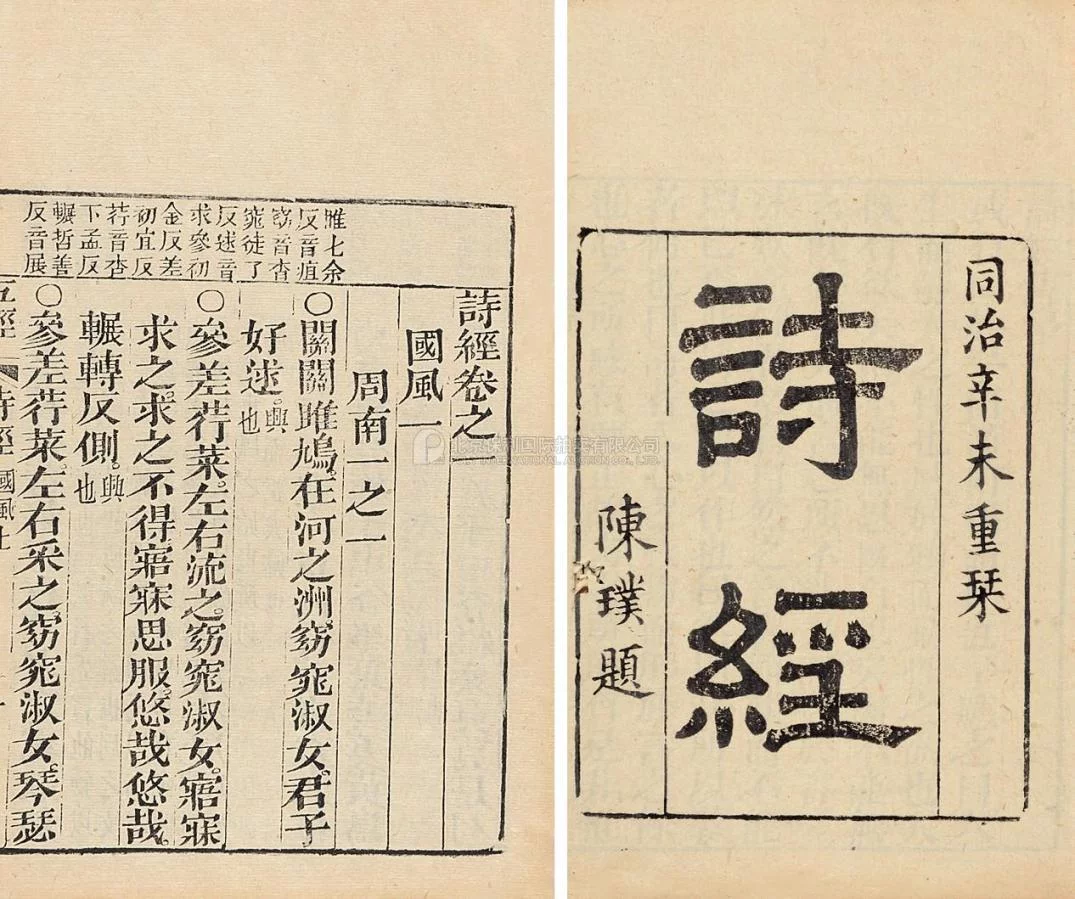 同治辛未重栞
詩經
陳璞題
雎七余
反音疽
窈音杳
窕徒了
反逑音
求參初
金反差
初宜反
荇音杏
下孟反
輾哲善
反音展
詩經卷之一
國風一
周南一之一
〇關關雎鳩。在河之洲。窈窕淑女。君子
好逑。興也
〇參差荇菜。左右流之。窈窕淑女。寤寐
求之。求之不得。寤寐思服。悠哉悠哉。
輾轉反側。興也
〇參差荇菜。左右采之。窈窕淑女。琴瑟
北京保利国际拍卖有限公司
POLY INTERNATIONAL AUCTION CO., LTD.